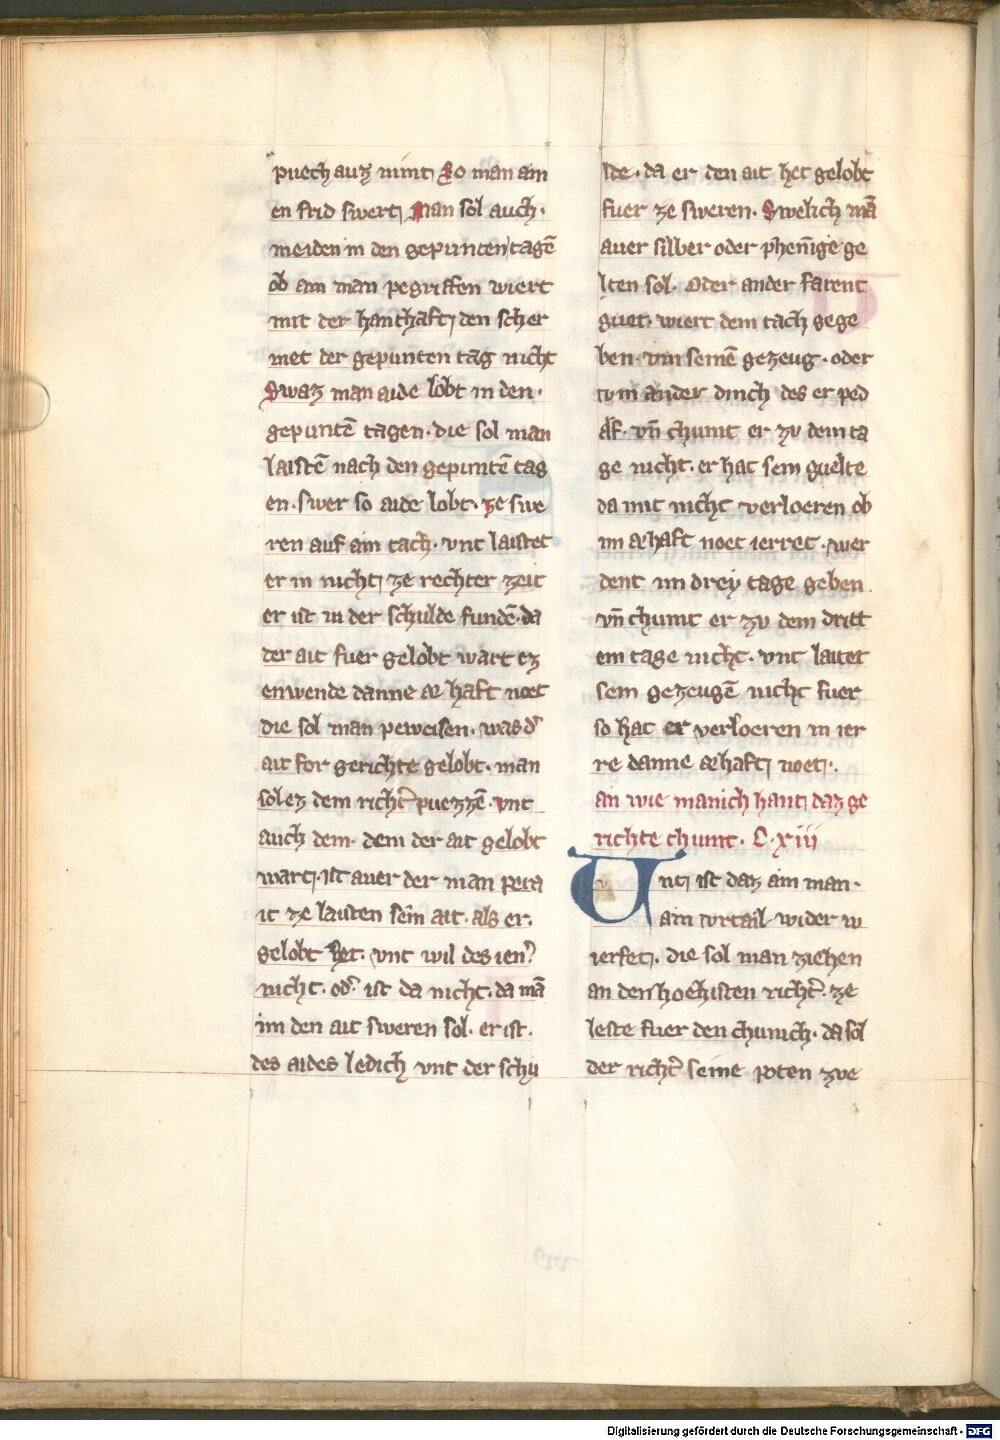 puech auz nimt So man ain
en frid swert, Man sol auch.
meiden in den gepunten tagē
ob ain man pegriffen wiert
mit der hanthaft, den scher
met der gepunten tag nicht
Swaz man aide lobt in den.
gepuntē tagen. die sol man
laistē nach den gepuntē tag
en. swer so aide lobt. ze swe
ren auf ain tach. vnt laistet
er in nicht, ze rechter zeit
er ist in der schulde fundē. da
der ait fuer gelobt wart ez
enwende danne ehaft noet
die sol man peweisen. was d'
ait for gerichte gelobt. man
sol ez dem richt' puezzē. vnt
auch dem. dem der ait gelobt
wart. ist auer der man pera
it ze laisten sein ait. als er.
gelobt het. vnt wil des ien'
nicht. od' ist da nicht. da mā
im den ait sweren sol. er ist.
des aides ledich vnt der schu
lde. da er den ait het gelobt
fuer ze sweren. Swelich mā
auer silber oder phennige ge
lten sol. Oder ander farent
guet. wiert dem tach gege
ben. vm seinē gezeug. oder
vm ander dinch des er ped
arf. vn̄ chumt er zv dem ta
ge nicht. er hat sein guelte
da mit nicht verloeren ob
im ehaft noet ierret. wer
dent im drey tage geben.
vn̄ chumt er zv dem dritt
em tage nicht. vnt laitet
sein gezeugē nicht fuer
so hat er verloeren in ier
re danne ehaft, noet.
an wie manich hant, daz ge
richte chumt. C. xiii
Vnt, ist daz ain man.
ain vrtail. wider w
ierfet. die sol man ziehen
an den hoehisten richt'. ze
leste fuer den chunich. da sol
der richt' seine poten zve
Digitalisierung gefördert durch die Deutsche Forschungsgemeinschaft - DFG